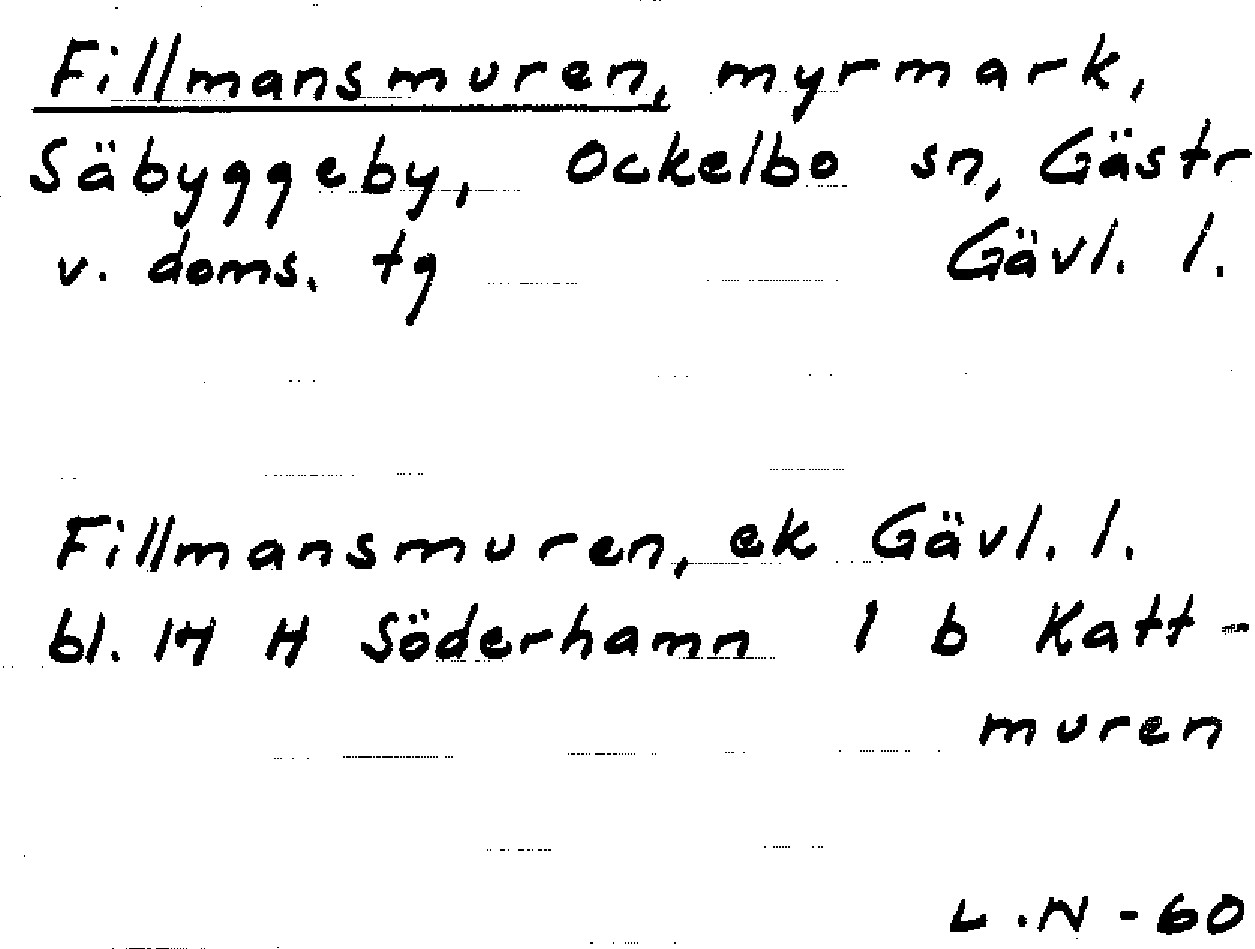 Fillmansmuren, myrmark,
Säbyggeby, Ockelbo sn, Gästr
v. doms. tg Gävl. l.
Fillmansmuren, ek Gävl. l.
bl. 14 H Söderhamn 1 b Katt-
muren
L.N-60